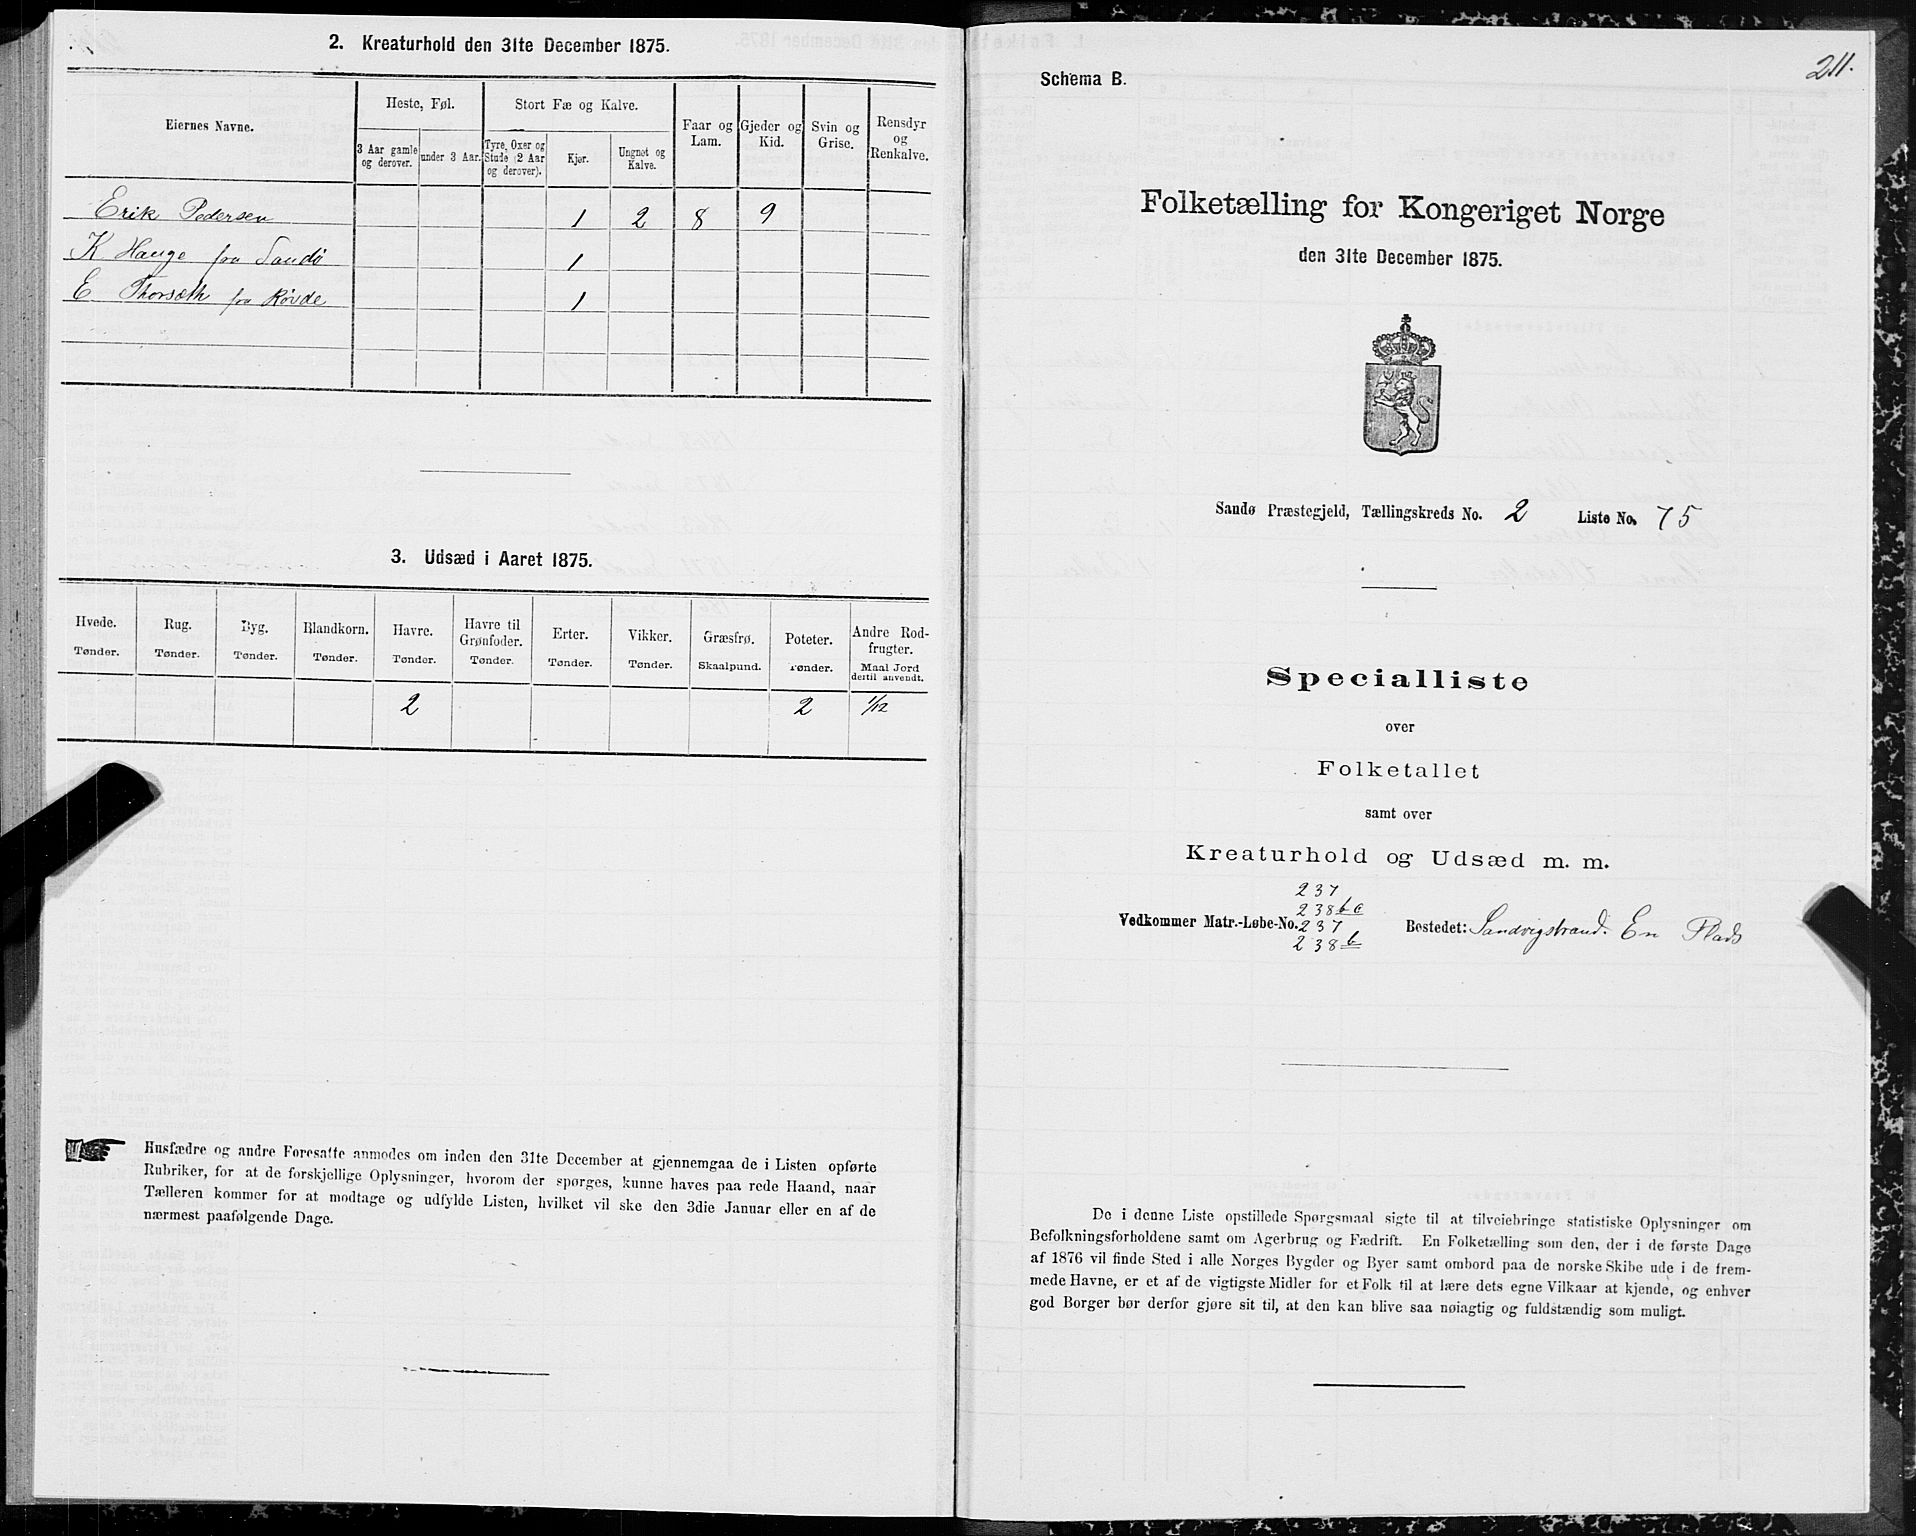 2. Kreaturhold den 31te December 1875.
Eiernes Navne.
Heste, Føl.
Stort Fæ og Kalve.
Faar og Lam.
Gjeder og Kid.
Svin og Grise.
Rensdyr og Renkalve.
3 Aar gamle og derover.
under 3 Aar.
Tyre, Oxer og Stude (2 Aar og derover).
Kjør.
Ungnøt og Kalve.
Erik Pedersen 1 2 8 9
K Hauge fra Sandö 1
E Thorsæth fra Rövde 1
3. Udsæd i Aaret 1875.
Hvede. Tønder.
Rug. Tønder.
Byg. Tønder.
Blandkorn. Tønder.
Havre. Tønder.
Havre til Grønfoder. Tønder.
Erter. Tønder.
Vikker. Tønder.
Græsfrø. Skaalpund.
Poteter. Tønder.
Andre Rodfrugter. Maal Jord dertil anvendt.
2 2 1/12
Husfædre og andre Foresatte anmodes om inden den 31te December at gjennemgaa de i Listen opførte
Rubriker, for at de forskjellige Oplysninger, hvorom der spørges, kunne haves paa rede Haand, naar
Tælleren kommer for at modtage og udfylde Listen, hvilket vil ske den 3die Januar eller en af de
nærmest paafølgende Dage.
211.
Schema B.
Folketælling for Kongeriget Norge
den 31te December 1875.
Sandø Præstegjeld, Tællingskreds No. 2 Liste No. 75
Specialliste
over
Folketallet
samt over
Kreaturhold og Udsæd m. m.
237
238 b c
Vedkommer Matr.-Løbe-No. 237 Bostedet: Sandvigstrand. En Plads
238 b
De i denne Liste opstillede Spørgsmaal sigte til at tilveiebringe statistiske Oplysninger om
Befolkningsforholdene samt om Agerbrug og Fædrift. En Folketælling som den, der i de første Dage
af 1876 vil finde Sted i alle Norges Bygder og Byer samt ombord paa de norske Skibe ude i de frem-
mede Havne, er et af de vigtigste Midler for et Folk til at lære dets egne Vilkaar at kjende, og enhver
god Borger bør derfor gjøre sit til, at den kan blive saa nøiagtig og fuldstændig som muligt.